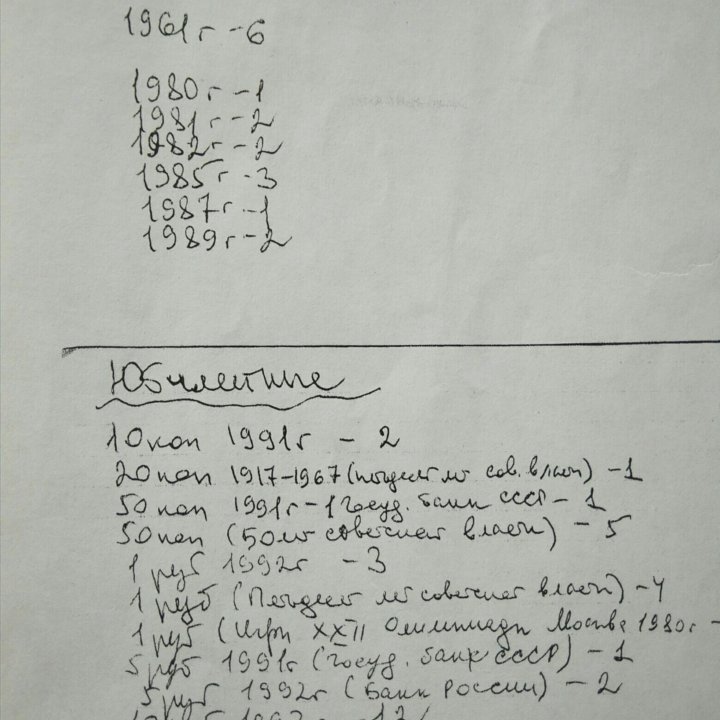 1961г - 6
1980г - 1
1981г - 2
1982г - 2
1985г - 3
1987г - 1
1989г - 2
Юбилейные
10 коп 1991г - 2
20 коп 1917-1967 (пятьдесят лет сов. власти) - 1
50 коп 1991г - 1 Госуд. банк СССР - 1
50 коп (50 лет советской власти) - 5
1 руб 1992г - 3
1 руб (Пятьдесят лет советской власти) - 4
1 руб (Игры XXII Олимпиады Москва 1980г -
5 руб 1991г (Госуд. банк СССР) - 1
5 руб 1992г (Банк России) - 2